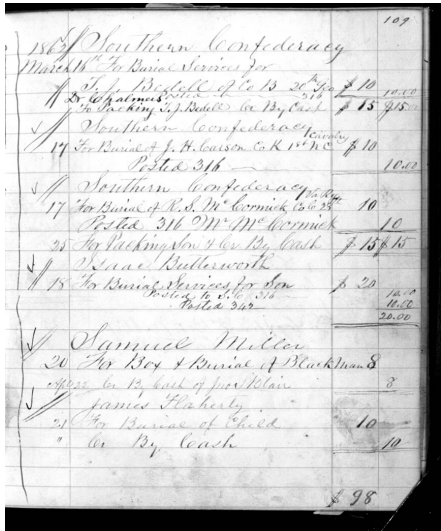 109
1862 Southern Confederacy
March 16th For Burial Services for
T. J. Bedell of Co B 20th Geo $ 10
Posted 316 10.00
Dr Chalmers
To Packing T. J. Bedell Cr By Cash $ 15 $15
Southern Confederacy
Cavalry
17 For Burial of J. H. Carson Co K 1st N C $ 10
Posted 316 10.00
Southern Confederacy
17 For Burial of R. S. McCormick Co C 28th 10
Posted 316 Mr McCormick 10
25 For Packing Son & Cr By Cash $ 15 $ 15
Isaac Butterworth
18 For Burial Services for Son $ 20
Posted to S. C. 316 10.00
Posted 342 10.00
20.00
Samuel Miller
20 For Box & Burial of Black Man 8
Apl 22 Cr By Cash of Blair 8
James Flaherty
21 For Burial of Child 10
" Cr By Cash 10
$ 98